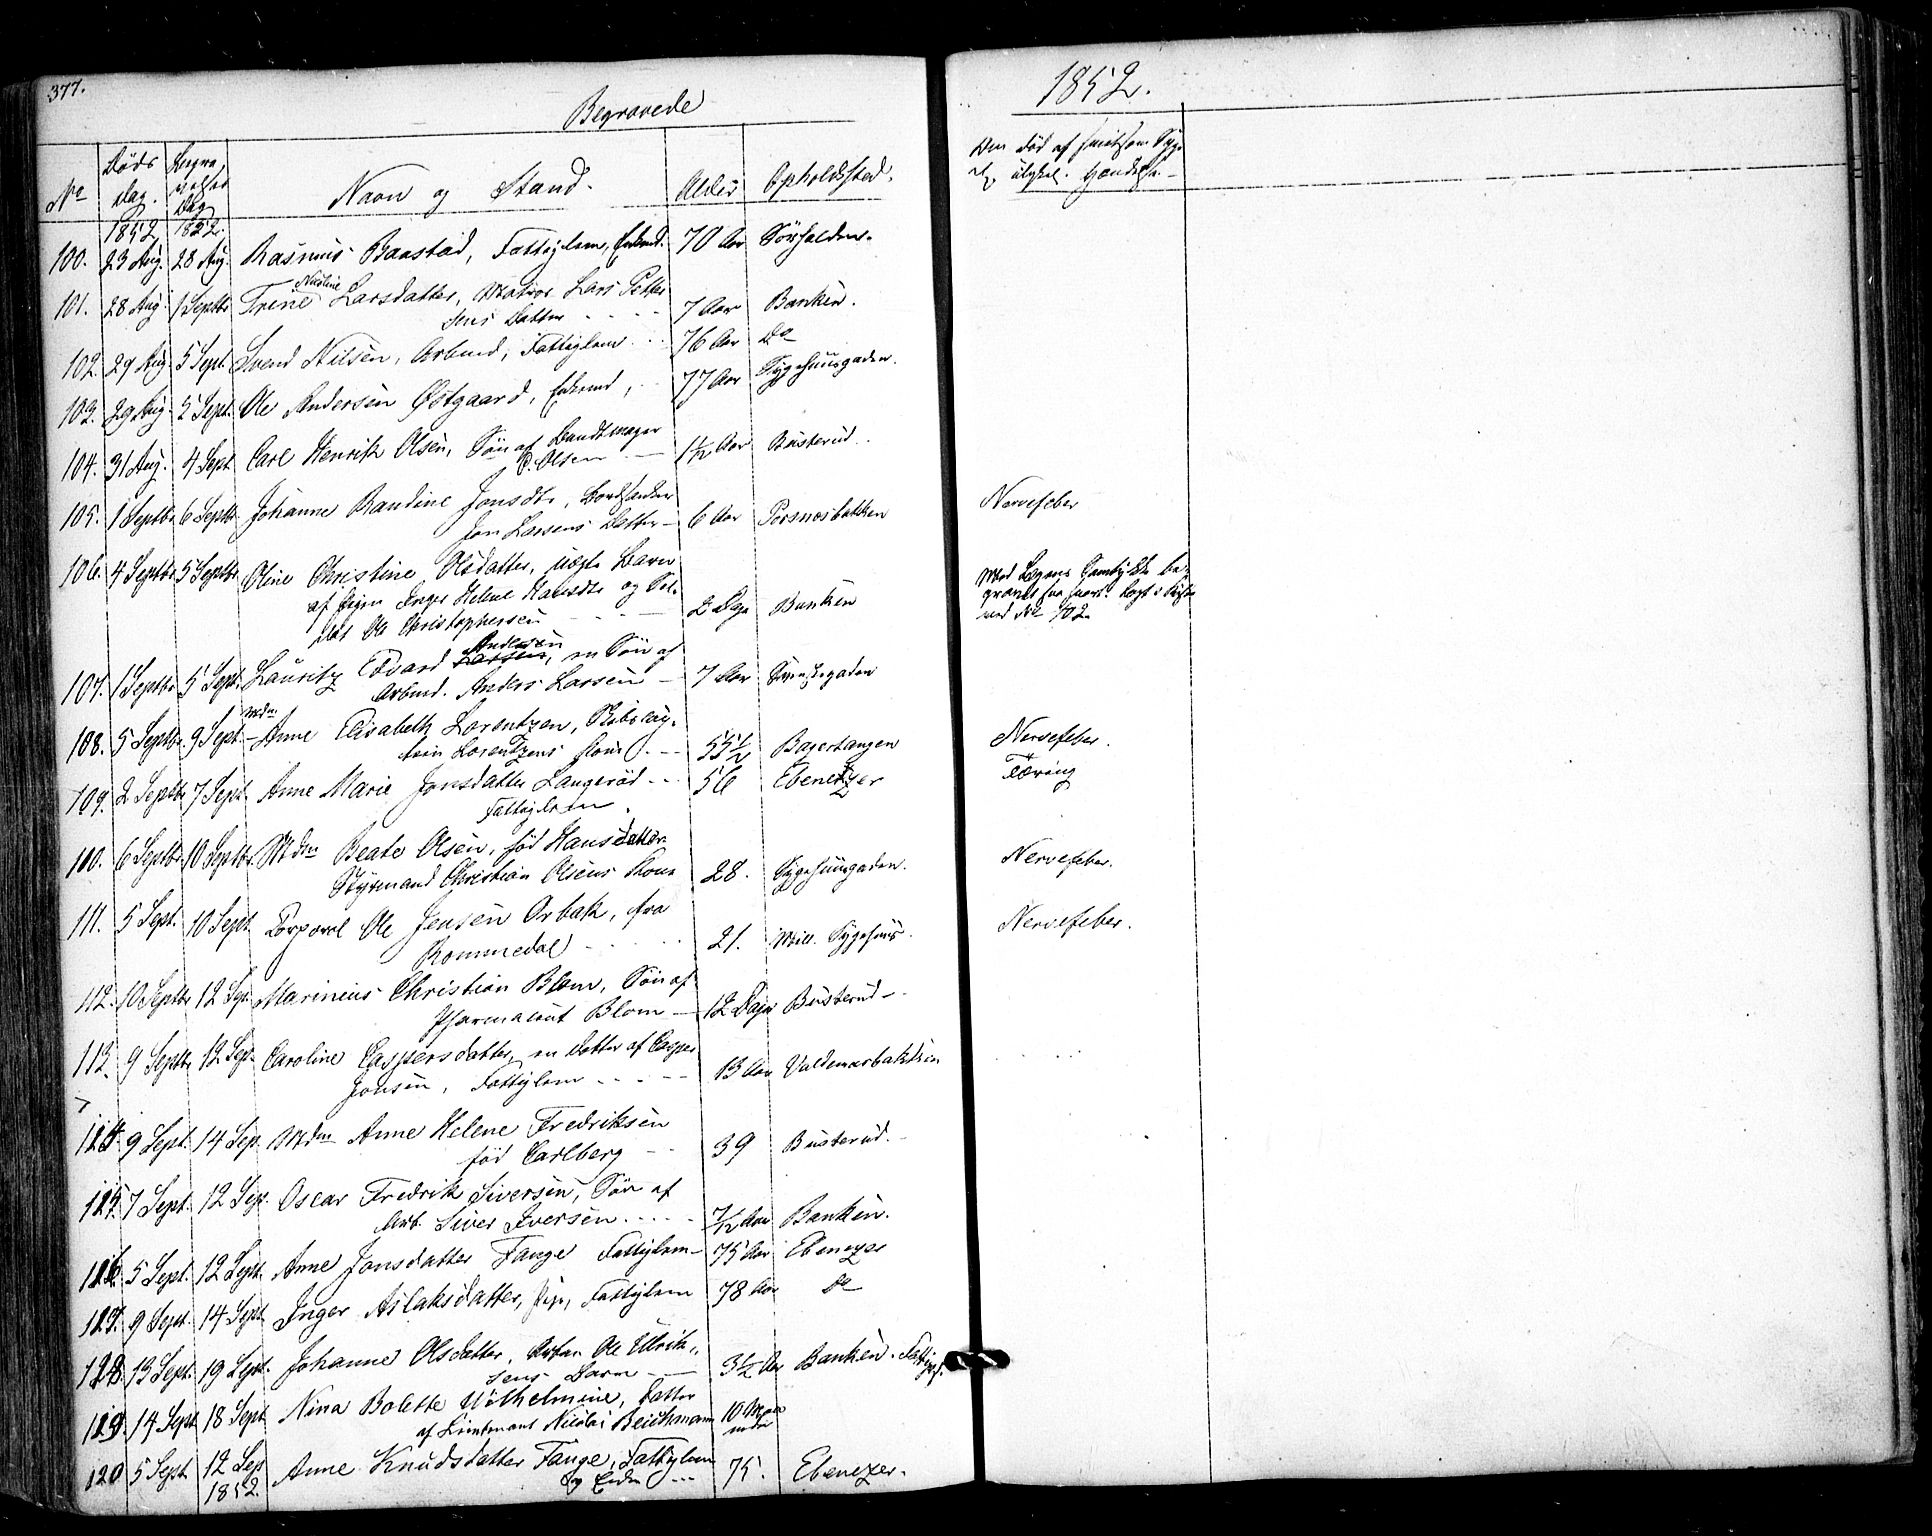 377.
Begravede
1852.
No
Døds Dag.
Begravelses Dag
Navn og Stand.
Alder
Opholdssted.
Om død af smitsom Syge
el. ulykkel. Hændelse.
1852 1852
100. 23 Aug. 28 Aug. Rasmus Baastad, Fattiglem, Enkmd. 70 Aar Sørhalden.
101. 28 Aug. 1 Septbr Trine Nicoline Larsdatter, Matros Lars Petter
sens Datter 7 Aar Banken.
102. 29 Aug 5 Sept. Svend Nilsen, Arbmd, Fattiglem 76 Aar Do
103. 29 Aug. 2 Sept. Ole Andersen Østgaard, Enkmd, 77 Aar Sygehuusgaden.
104. 31 Aug. 4 Sept Carl Henrik Olsen, Søn af Bundtmager
C. Olsen 1½ Aar Busterud.
105. 1 Septbr 6 Septbr. Johanne Randine Jonsdtr, Bordhandler
Jon Larsens Datter 6 Aar Porsnæsbakken Nervefeber
106. 4 Septbr 5 Septbr. Oline Christine Olsdatter, uægte Barn
af Pigen Inger Helene Hansdtr og Sol-
dat Ole Christophersen 2 Dage Banken
Med Lægens Samtykke be-
gravet saa snart. Lagt i Kiste
med No 102.
107. 1 Septbr. 5 Sept. Lauritz Edvard Larsen Andersen, en Søn af
Arbmd. Anders Larsen 7 Aar
108. 5 Septbr. 9 Sept. Mdm. Anne Elisabeth Lorentzen,
Lorentzens Kone 55½ Bajertangen Nervefeber.
109. 2 Septbr 7 Sept. Anne Marie Jonsdatter Langerød 56 Ebenetzer Tæring
Fattiglem.
100. 6 Septbr. 10 Septbr. Mdm Beate Olsen, fød Hansdatter
Styrmand Christian Olsens Kone 28. Sygehuusgaden. Nervefeber.
111. 5 Sept. 10 Sept. Corporal Ole Jensen Orbæk, fra
Rommedal 21. Mill. Sygehuus. Nervefeber.
112. 10 Septbr. 12 Sep. Marinius Christian Blom, Søn af
Pharmaceut Blom 12 Dage Busterud
113. 9 Septbr. 12 Sep. Caroline Caspersdatter, en Datter af Casper
Jonsen, Fattiglem 13 Aar Valdemarbakken
114. 9 Sept. 14 Sep. Mdm Anne Helene Fredriksen
fød Carlberg 39 Busterud.
115. 7 Sept. 12 Sep. Oscar Fredrik Siversen, Søn af
Arb. Siver Iversen 7/12 Aar Banken.
116. 5 Sept. 12 Sept. Anne Jonsdatter Tange Fattiglem 75 Aar Ebenezer
117. 9 Sept. 14 Sept Inger Aslaksdatter, Pige, Fattiglem 78 Aar Do
118. 13 Sept. 19 Sept. Johanne Olsdatter, Arbm. Ole Ulrik-
sens Barn 3½ Aar Banken.
119. 14 Sept 18 Sept Nina Bolette Wilhelmine, Datter
af Lieutenant Nicolai Beichmann 10 Maaneder
120 5 Sept 12 Sep Anne Knudsdatter Tange, Fattiglem
og Enke 75. Ebenezer.
1852.